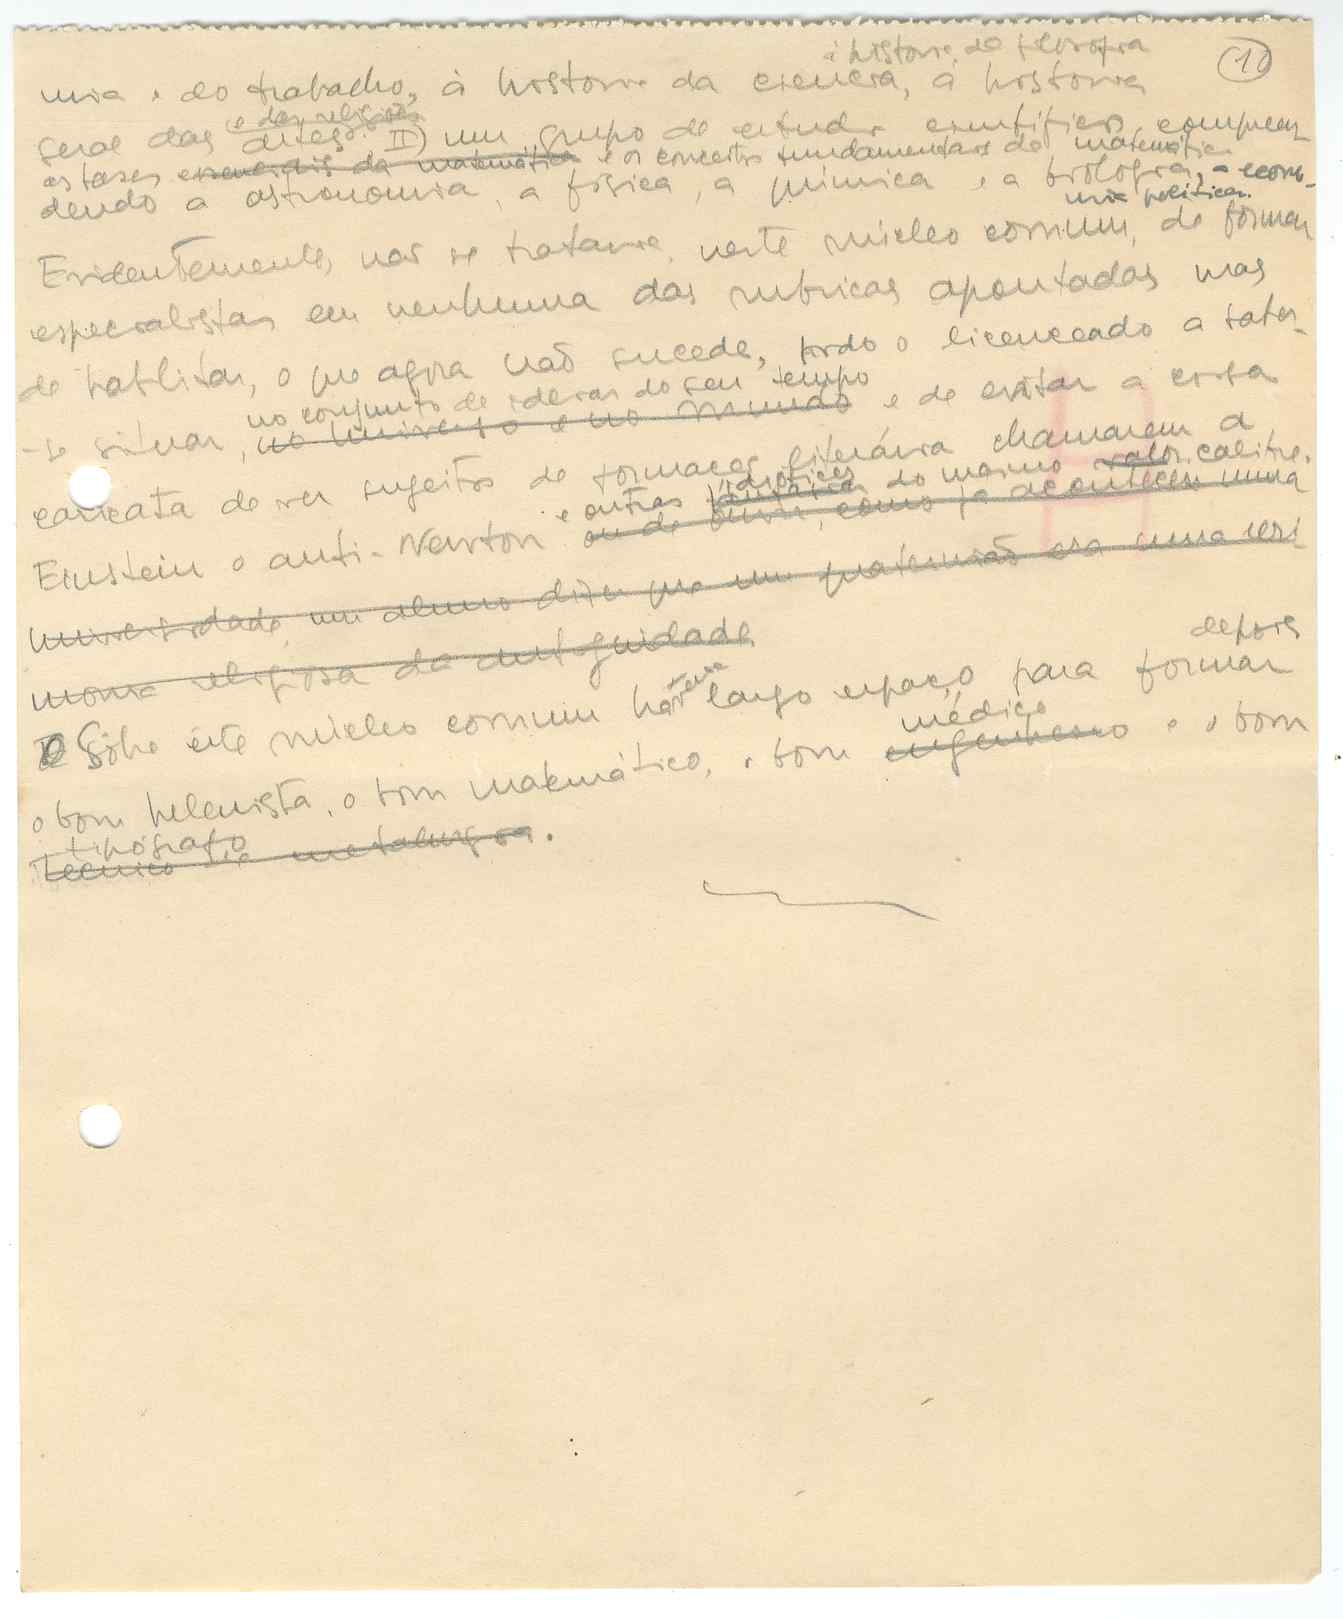 à historia da filosofia
10
mia e do trabalho, à historia da ciencia, à historia
e das religiões
geral das artes. II) um grupo de estudos cientificos compreen-
as bases essenciais da matemática e os conceitos fundamentais da matemática
dendo a astronomia, a fisica, a quimica e a biologia, a econo-
mia politica.
Evidentemente, não se trataria, neste núcleo comum, de formar
especialistas em nenhuma das rubricas apontadas mas
de habilitar, o que agora não sucede, todo o licenceado a saber-
no conjunto de ideias do seu tempo
-se situar, no Universo e no Mundo e de evitar a coisa
caricata de ver sugeitos de formação literária chamarem a
e outras idiotices do mesmo valor calibre.
Einstein o anti-Newton ou de ouvir, como já aconteceu numa
Universidade, um aluno dizer que um quaternião era uma ceri-
monia religiosa da antiguidade
depois
Sôbre êste núcleo comum haveria largo espaço para formar
médico
o bom helenista, o bom matemático, o bom engenheiro e o bom
tipógrafo
tecnico de metalurgia.